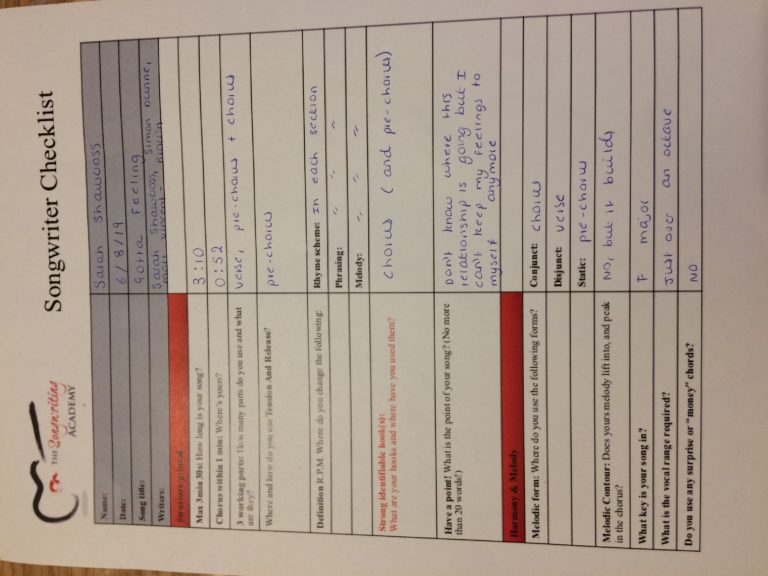 THE Songwriting
ACADEMY
Songwriter Checklist
Name: Sarah Shawcross
Date: 6/8/19
Song title: Gotta Feeling
Writers: Sarah Shawcross, Simon Dunne,
Matt Vincent-
Structure/general
Max 3min 30s: How long is your song? 3:10
Chorus within 1 min: Where's yours? 0:52
3 working parts: How many parts do you use and what
are they? verse, pre-chorus + chorus
Where and how do you use Tension And Release? pre-chorus
Definition R.P.M. Where do you change the following: Rhyme scheme: In each section
Phrasing: " "
Melody: " "
Strong identifiable hook(s):
What are your hooks and where have you used them? chorus (and pre-chorus)
Have a point! What is the point of your song? (No more
than 20 words!)
Don't know where this
relationship is going but I
can't keep my feelings to
myself anymore
Harmony & Melody
Melodic form: Where do you use the following forms? Conjunct: chorus
Disjunct: verse
Static: pre-chorus
Melodic Contour: Does yours melody lift into, and peak
in the chorus? No, but it builds
What key is your song in? F major
What is the vocal range required? Just over an octave
Do you use any surprise or "money" chords? NO